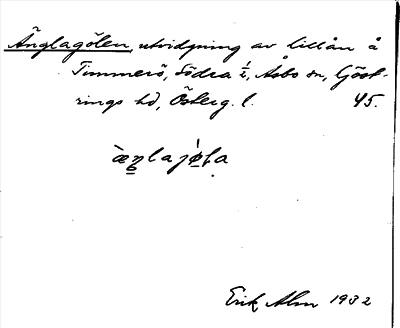 Änglagölen, utvidgning av lillån å
Timmerö, Södra ½, Åsbo sn, Göst-
rings hd, Österg. l. 45.
Erik Alm 1932